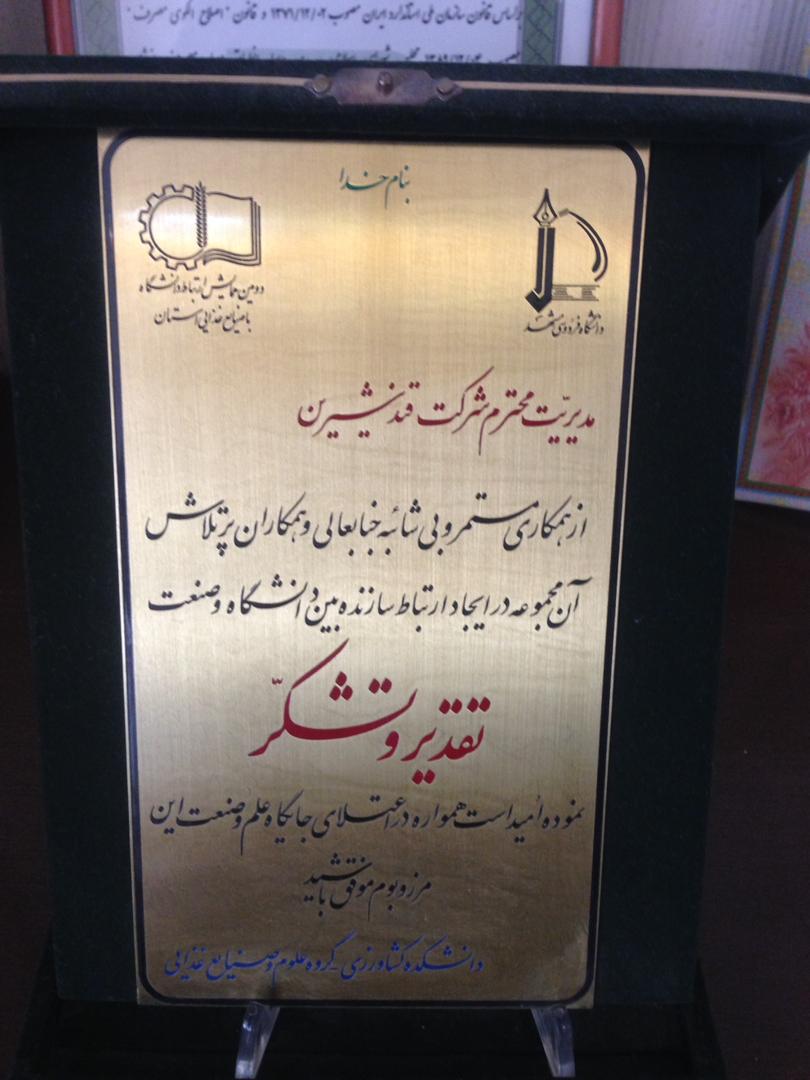 براساس قانون سازمان ملی استاندارد ایران مصوب ۱۳۷۱/۱۲/۰۲ و قانون "اصلاح الگوی مصرف"
بنام خدا
دانشگاه فردوسی مشهد
دومین همایش ارتباط دانشگاه
با صنایع غذایی استان
مدیریّت محترم شرکت قند شیرین
از همکاری مستمر و بی شائبه جنابعالی و همکاران پرتلاش
آن مجموعه در ایجاد ارتباط سازنده بین دانشگاه و صنعت
تقدیر و تشکّر
نموده اُمید است همواره در اعتلای جایگاه علم و صنعت این
مرز و بوم موفق باشید
دانشکده کشاورزی - گروه علوم و صنایع غذایی